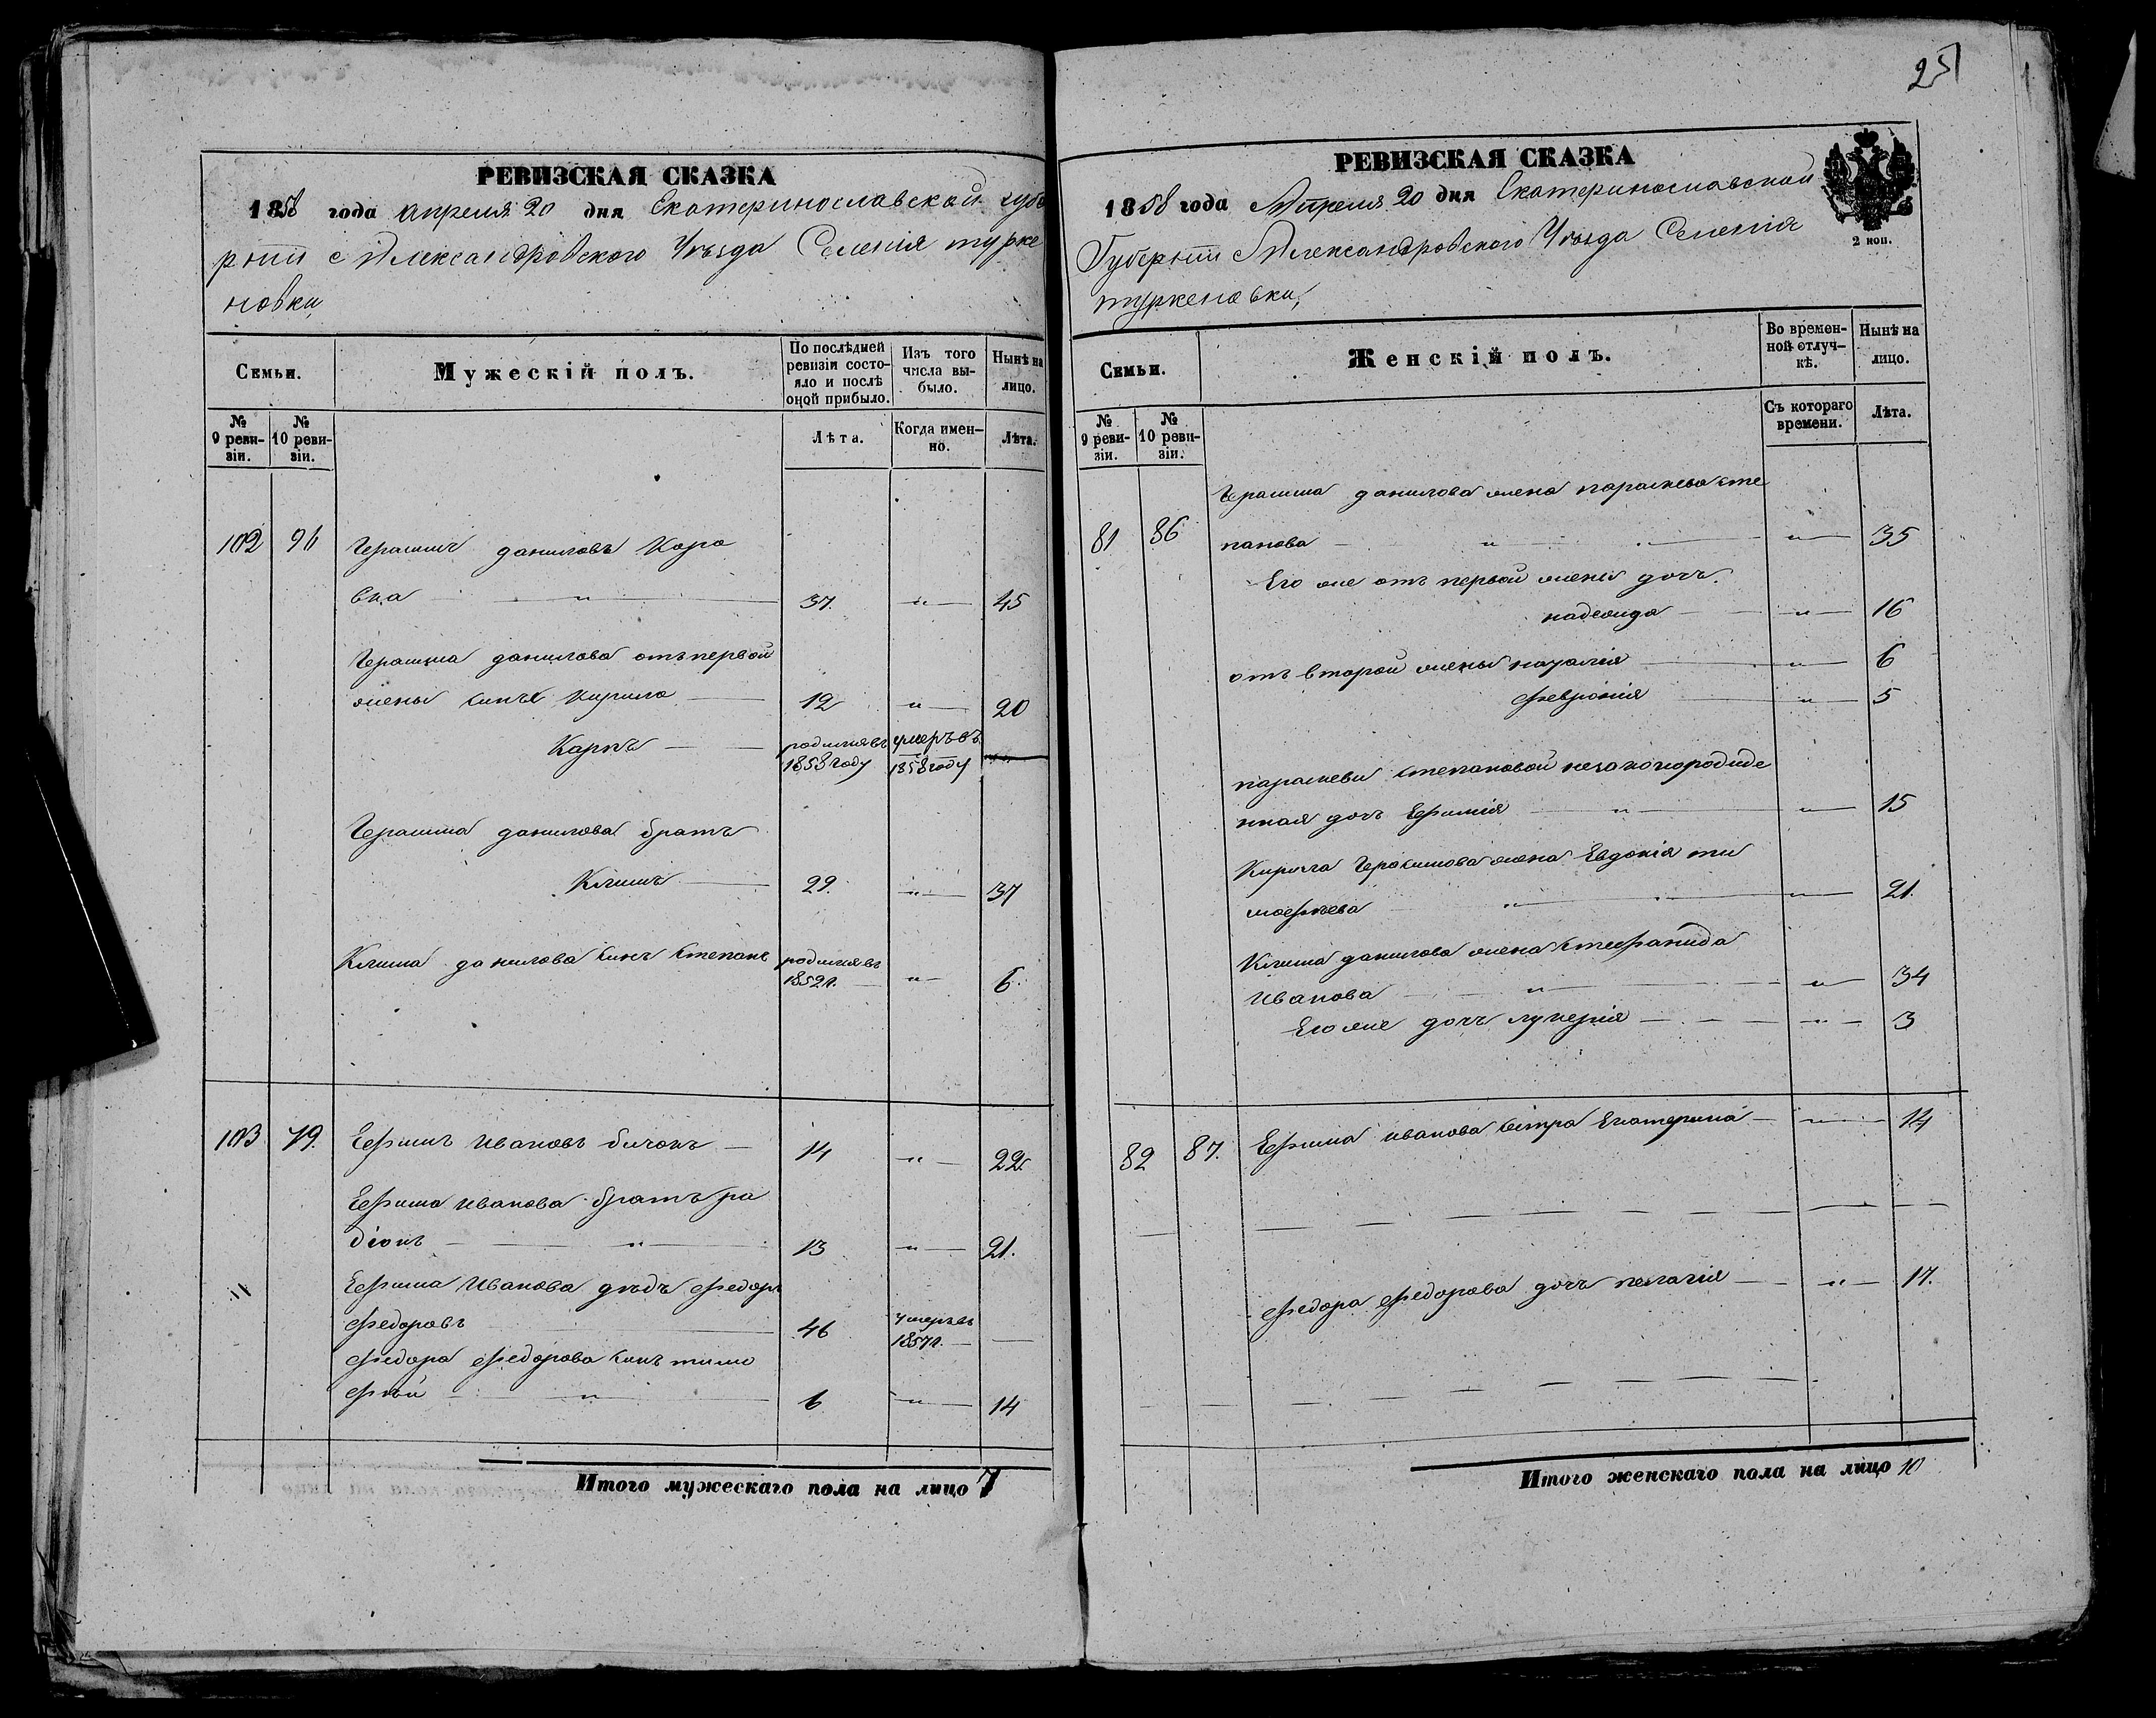 251
РЕВИЗСКАЯ СКАЗКА
1858 года апреля 20 дня Екатеринославской губе
рніи Александровского Уезда Селенія турке
новки,
Семьи.
Мужескій полъ.
По послѣдней ревизіи состояло и послѣ оной прибыло.
Изъ того числа выбыло.
Нынѣ на лицо.
№ 9 ревизіи.
№ 10 ревизіи.
Лѣта.
Когда именно.
Лѣта.
102 96 Герасимъ даниловъ Коро
вка — " — 37. — " — 45
Герасима данилова отъ первой
жены синъ Кирило — 12 " — 20
Карпъ — родился въ 1858 году умеръ въ 1858 году —
Герасима данилова братъ
Климъ — 29. " — 37
Клима данилова синъ степанъ родился въ 1852 г. — " 6.
103 79. Ефимъ Ивановъ бичокъ — 14 — " — 22.
Ефима Иванова братъ ра
діонъ — " — 13 — " — 21.
Ефима Иванова дядъ Федоръ
Федоровъ — 46 умеръ въ 1857 г. —
Федора Федорова синъ тимо
фѣй — " — 6 — " — 14
Итого мужескаго пола на лицо 7
РЕВИЗСКАЯ СКАЗКА
1858 года Апреля 20 дня Екатеринославской
Губерніи Александровского Уезда Селенія
туркеновки,
2 коп.
Семьи.
Женскій полъ.
Во временной отлучкѣ.
Нынѣ на лицо.
№ 9 ревизіи.
№ 10 ревизіи.
Съ котораго времени.
Лѣта.
Герасима данилова жена параскева сте
81 86 панова — " — " — 35
Его же отъ первой жены дочъ.
надежда — " — 16
отъ второй жены наталія — " — 6
Февронія — " — 5
параскеви степановой незаконорожде
нная дочъ Ефимія — " — " — 15
Кирила Герасимова жена Евдокія ти
мофеева — " — " — 21.
Клима данилова жена стефанида
Иванова — " — " — 34
Его же дочъ лукерія — " — 3
82 87. Ефима иванова сестра Екатерина — " — 14
Федора Федорова дочъ пелагія — " — 17.
Итого женскаго пола на лицо 10